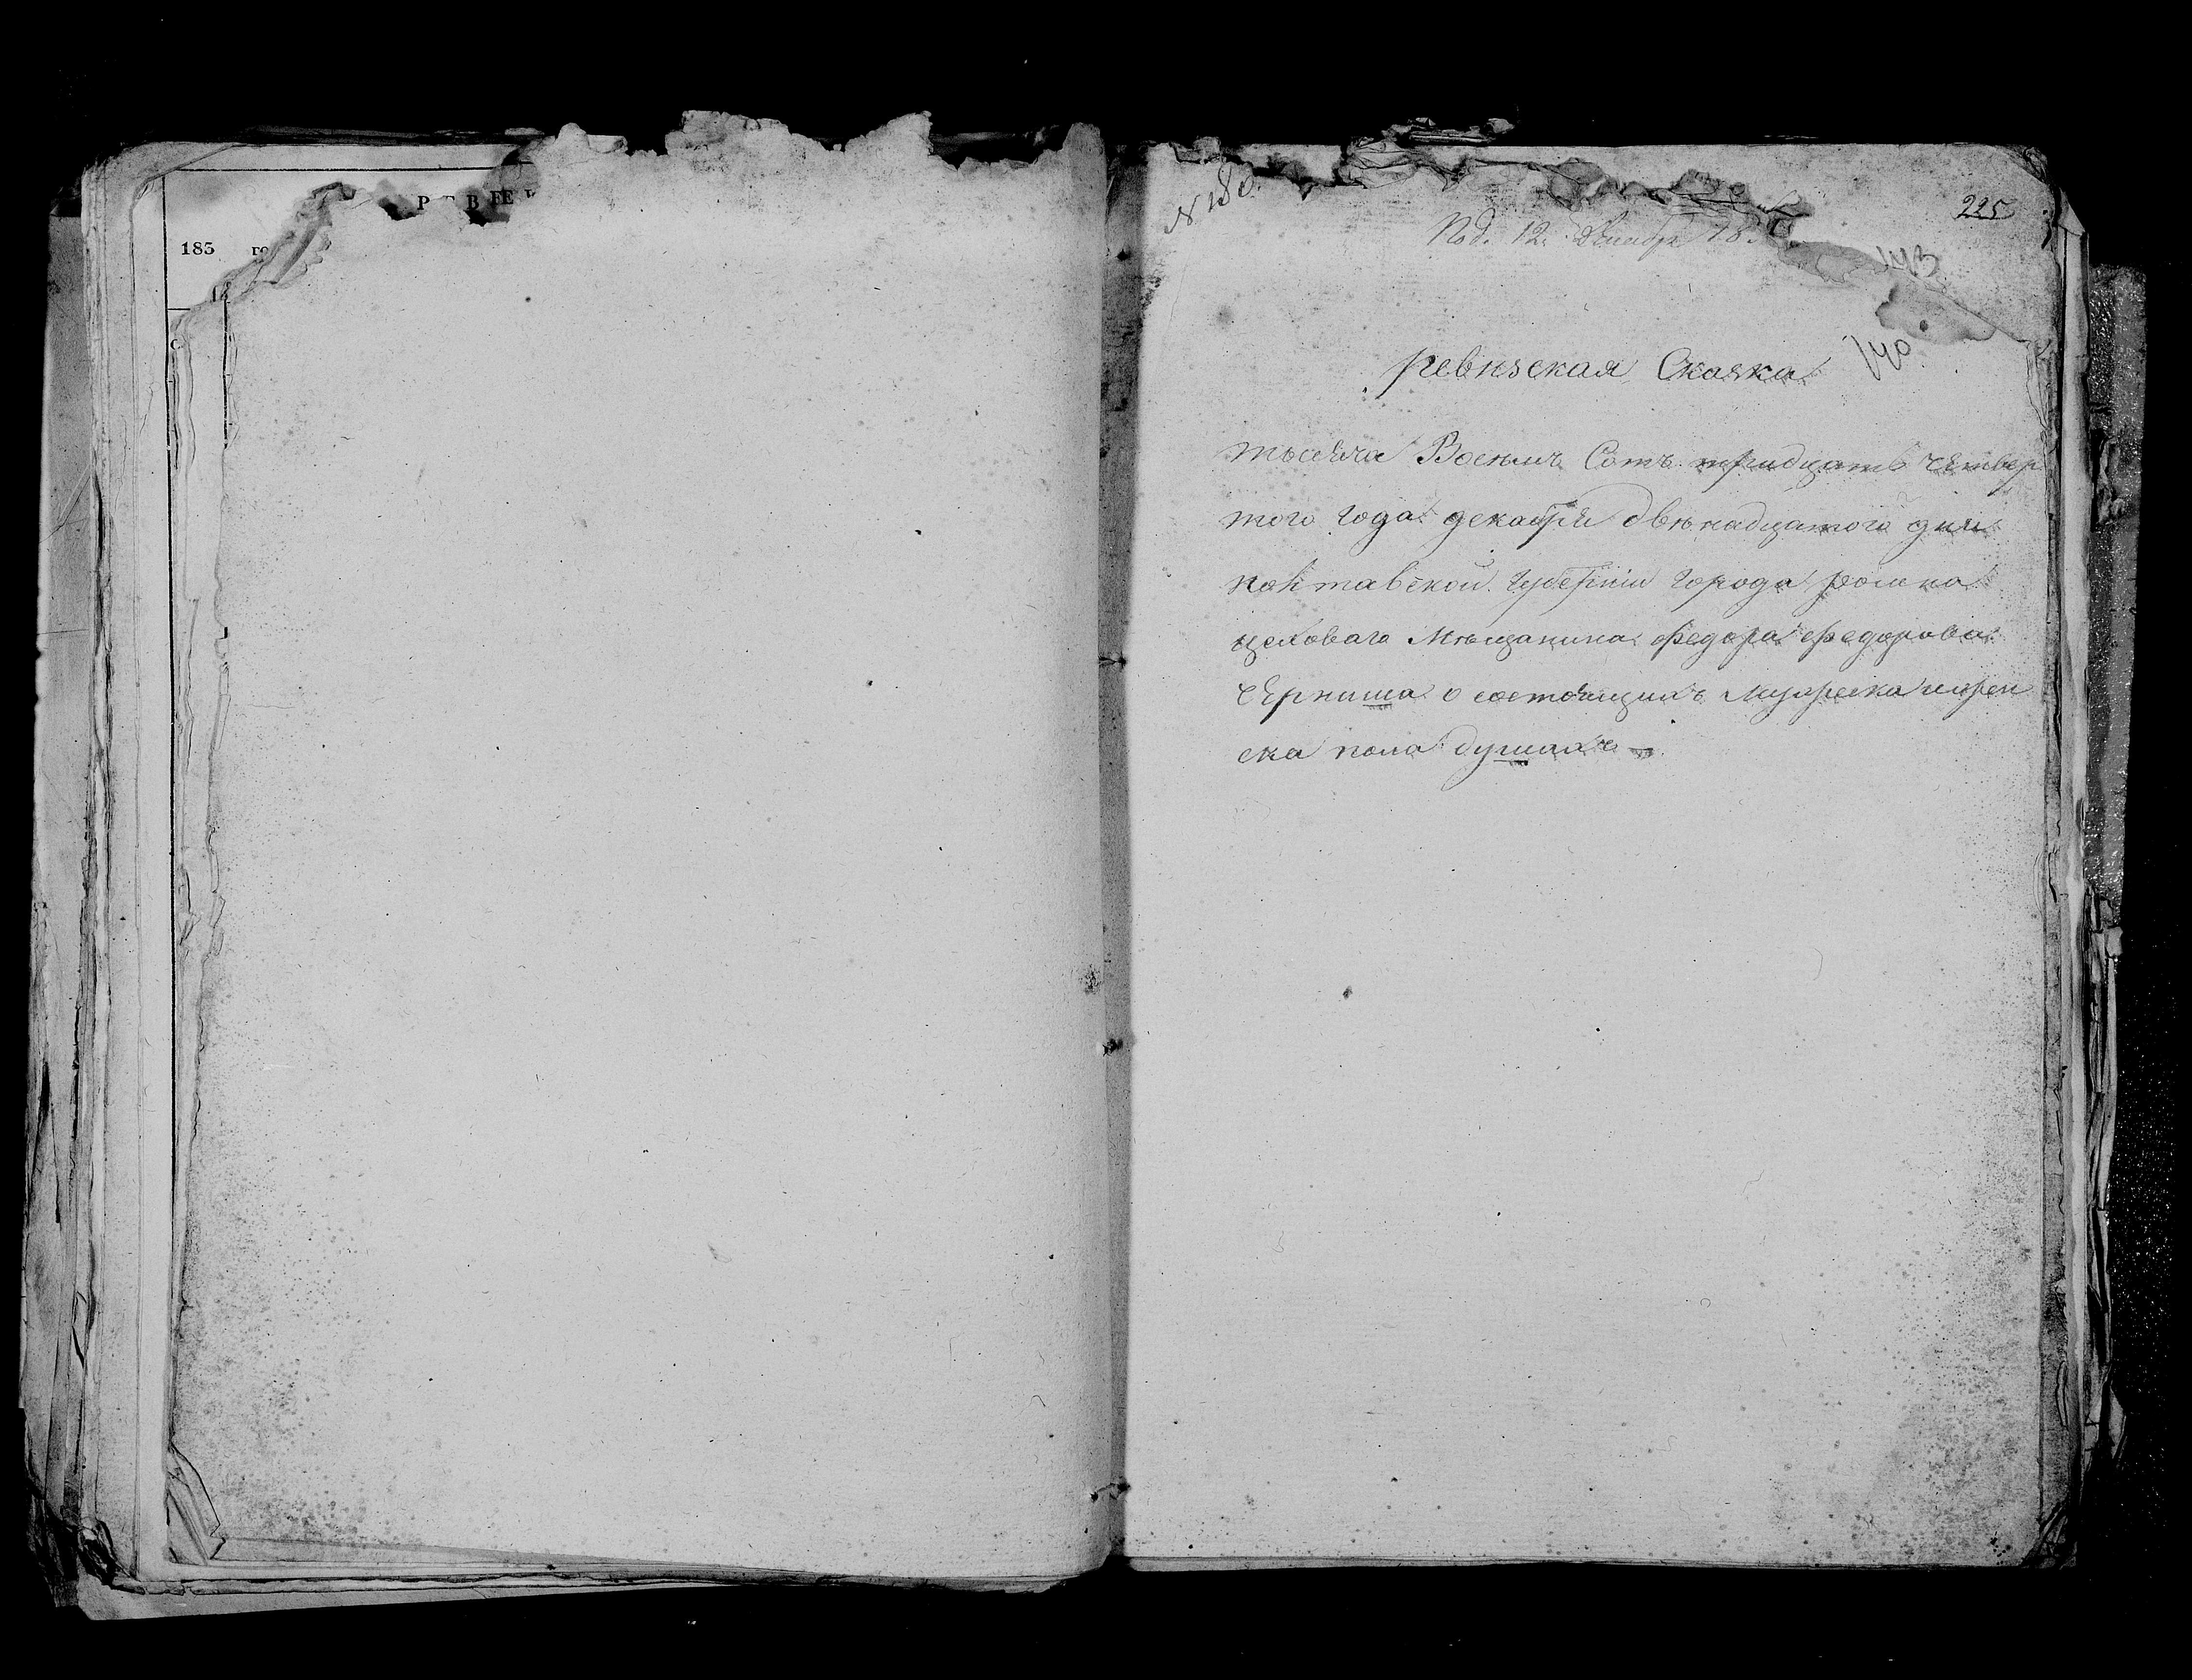 183 го
№ 180.
225
Под. 12. декабр 18
143
140
ревизская Сказка
тысяча Восемъ Сотъ тридцать четвер
того года декабря двенадцатого дня
полтавской губернiи города ромна
цеховаго Мѣщанина федора федорова
черниша о состоящихъ мужеска и жен
ска пола душахъ